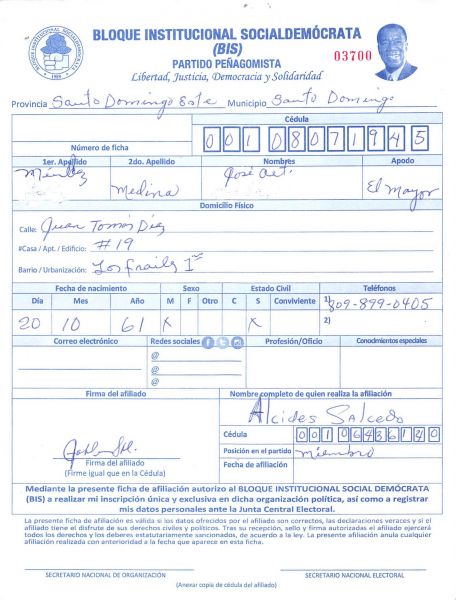 BLOQUE INSTITUCIONAL SOCIALDEMÓCRATA
(BIS)
PARTIDO PEÑAGOMISTA
Libertad, Justicia, Democracia y Solidaridad
03700
Provincia Santo Domingo Este Municipio Santo Domingo
Cédula
Número de ficha 00108071945
1er. Apellido 2do. Apellido Nombres Apodo
Méndez Medina José El Mayor
Domicilio Físico
Calle: Juan Tomás Díaz
#Casa / Apt. / Edificio: #19
Barrio / Urbanización: Los Frailes 1
Fecha de nacimiento Sexo Estado Civil Teléfonos
Día Mes Año M F Otro C S Conviviente 1) 809-899-0405
20 10 61 X X 2)
Correo electrónico Redes sociales Profesión/Oficio Conocimientos especiales
@
@
@
Firma del afiliado Nombre completo de quien realiza la afiliación
Alcides Salcedo
Cédula 00106436140
Firma del afiliado Posición en el partido Miembro
(Firme igual que en la Cédula) Fecha de afiliación
Mediante la presente ficha de afiliación autorizo al BLOQUE INSTITUCIONAL SOCIAL DEMÓCRATA
(BIS) a realizar mi inscripción única y exclusiva en dicha organización política, así como a registrar
mis datos personales ante la Junta Central Electoral.
La presente ficha de afiliación es válida si los datos ofrecidos por el afiliado son correctos, las declaraciones veraces y si el
afiliado tiene el disfrute de sus derechos civiles y políticos. Tras su recepción, sello y firma autorizadas el afiliado ejercerá
todos los derechos y los deberes estatutariamente sancionados, de acuerdo a la ley. La presente afiliación anula cualquier
afiliación realizada con anterioridad a la fecha que aparece en esta ficha.
SECRETARIO NACIONAL DE ORGANIZACIÓN SECRETARIO NACIONAL ELECTORAL
(Anexar copia de cédula del afiliado)